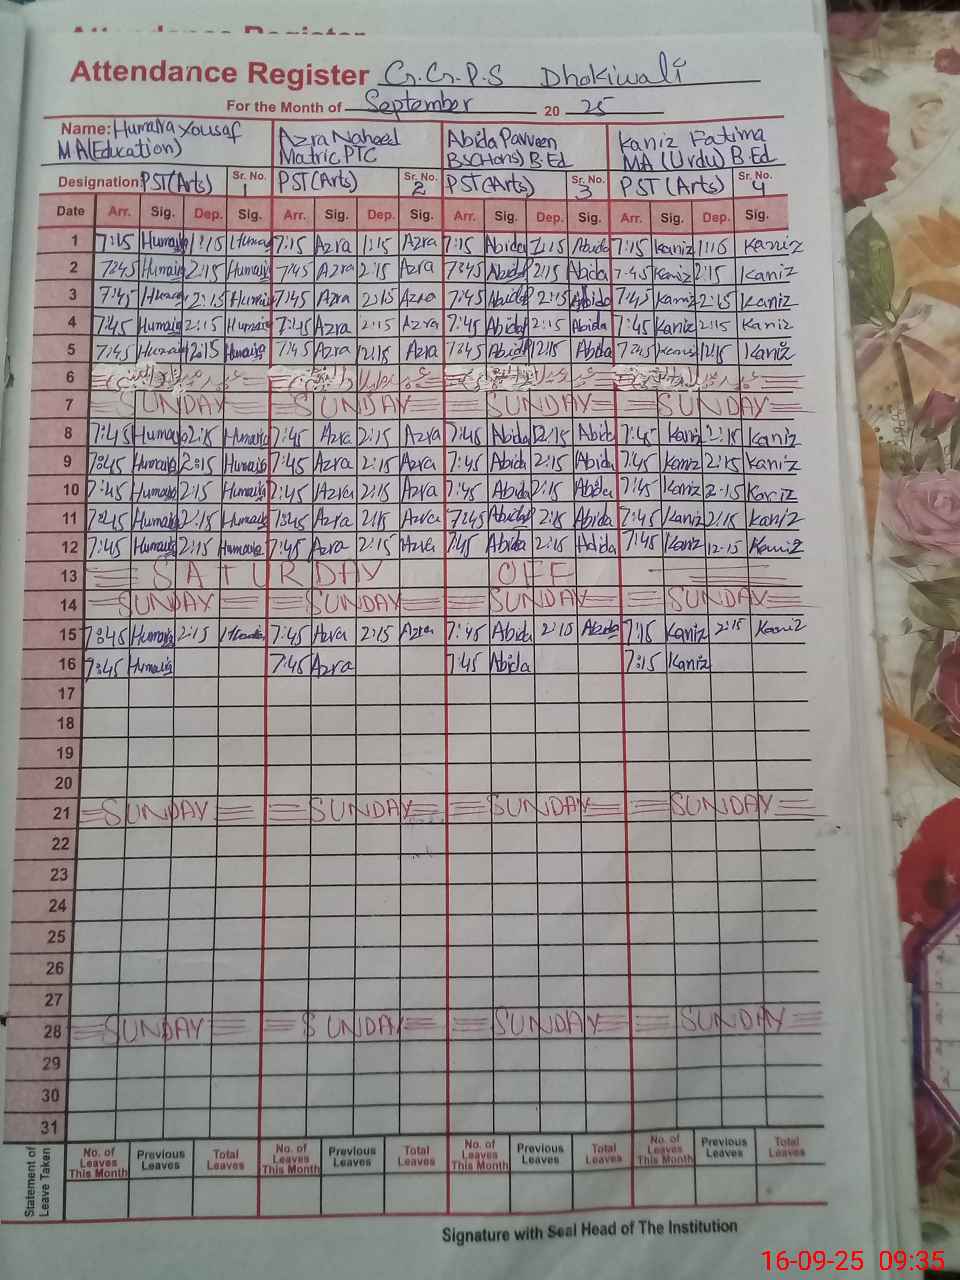 Attendance Register G.G.P.S Dhokiwali
For the Month of September 20 25
Name: Humaira Yousaf Azra Naheed Abida Parveen Kaniz Fatima
MA(Education) Matric PTC BSc(Hons) B.Ed MA (Urdu) B.Ed
Designation: PST(Arts) Sr. No. 1 PST(Arts) Sr. No. 2 PST(Arts) Sr. No. 3 PST(Arts) Sr. No. 4
Date Arr. Sig. Dep. Sig. Arr. Sig. Dep. Sig. Arr. Sig. Dep. Sig. Arr. Sig. Dep. Sig.
1 7:15 Humaira 1:15 Humaira 7:15 Azra 1:15 Azra 7:15 Abida 1:15 Abida 7:15 Kaniz 1:15 Kaniz
2 7:45 Humaira 2:15 Humaira 7:45 Azra 2:15 Azra 7:45 Abida 2:15 Abida 7:45 Kaniz 2:15 Kaniz
3 7:45 Humaira 2:15 Humaira 7:45 Azra 2:15 Azra 7:45 Abida 2:15 Abida 7:45 Kaniz 2:15 Kaniz
4 7:45 Humaira 2:15 Humaira 7:45 Azra 2:15 Azra 7:45 Abida 2:15 Abida 7:45 Kaniz 2:15 Kaniz
5 7:45 Humaira 12:15 Humaira 7:45 Azra 12:15 Azra 7:45 Abida 12:15 Abida 7:45 Kaniz 12:15 Kaniz
6
7 SUNDAY SUNDAY SUNDAY SUNDAY
8 7:45 Humaira 2:15 Humaira 7:45 Azra 2:15 Azra 7:45 Abida 2:15 Abida 7:45 Kaniz 2:15 Kaniz
9 7:45 Humaira 2:15 Humaira 7:45 Azra 2:15 Azra 7:45 Abida 2:15 Abida 7:45 Kaniz 2:15 Kaniz
10 7:45 Humaira 2:15 Humaira 7:45 Azra 2:15 Azra 7:45 Abida 2:15 Abida 7:45 Kaniz 2:15 Kaniz
11 7:45 Humaira 2:15 Humaira 7:45 Azra 2:15 Azra 7:45 Abida 2:15 Abida 7:45 Kaniz 2:15 Kaniz
12 7:45 Humaira 2:15 Humaira 7:45 Azra 2:15 Azra 7:45 Abida 2:15 Abida 7:45 Kaniz 12:15 Kaniz
13 SATURDAY OFF
14 SUNDAY SUNDAY SUNDAY SUNDAY
15 7:45 Humaira 2:15 Humaira 7:45 Azra 2:15 Azra 7:45 Abida 2:15 Abida 7:15 Kaniz 2:15 Kaniz
16 7:45 Humaira 7:45 Azra 7:45 Abida 7:15 Kaniz
17
18
19
20
21 SUNDAY SUNDAY SUNDAY SUNDAY
22
23
24
25
26
27
28 SUNDAY SUNDAY SUNDAY SUNDAY
29
30
31
Statement of Leave Taken
No. of Leaves This Month Previous Leaves Total Leaves No. of Leaves This Month Previous Leaves Total Leaves No. of Leaves This Month Previous Leaves Total Leaves No. of Leaves This Month Previous Leaves Total Leaves
Signature with Seal Head of The Institution
16-09-25 09:35